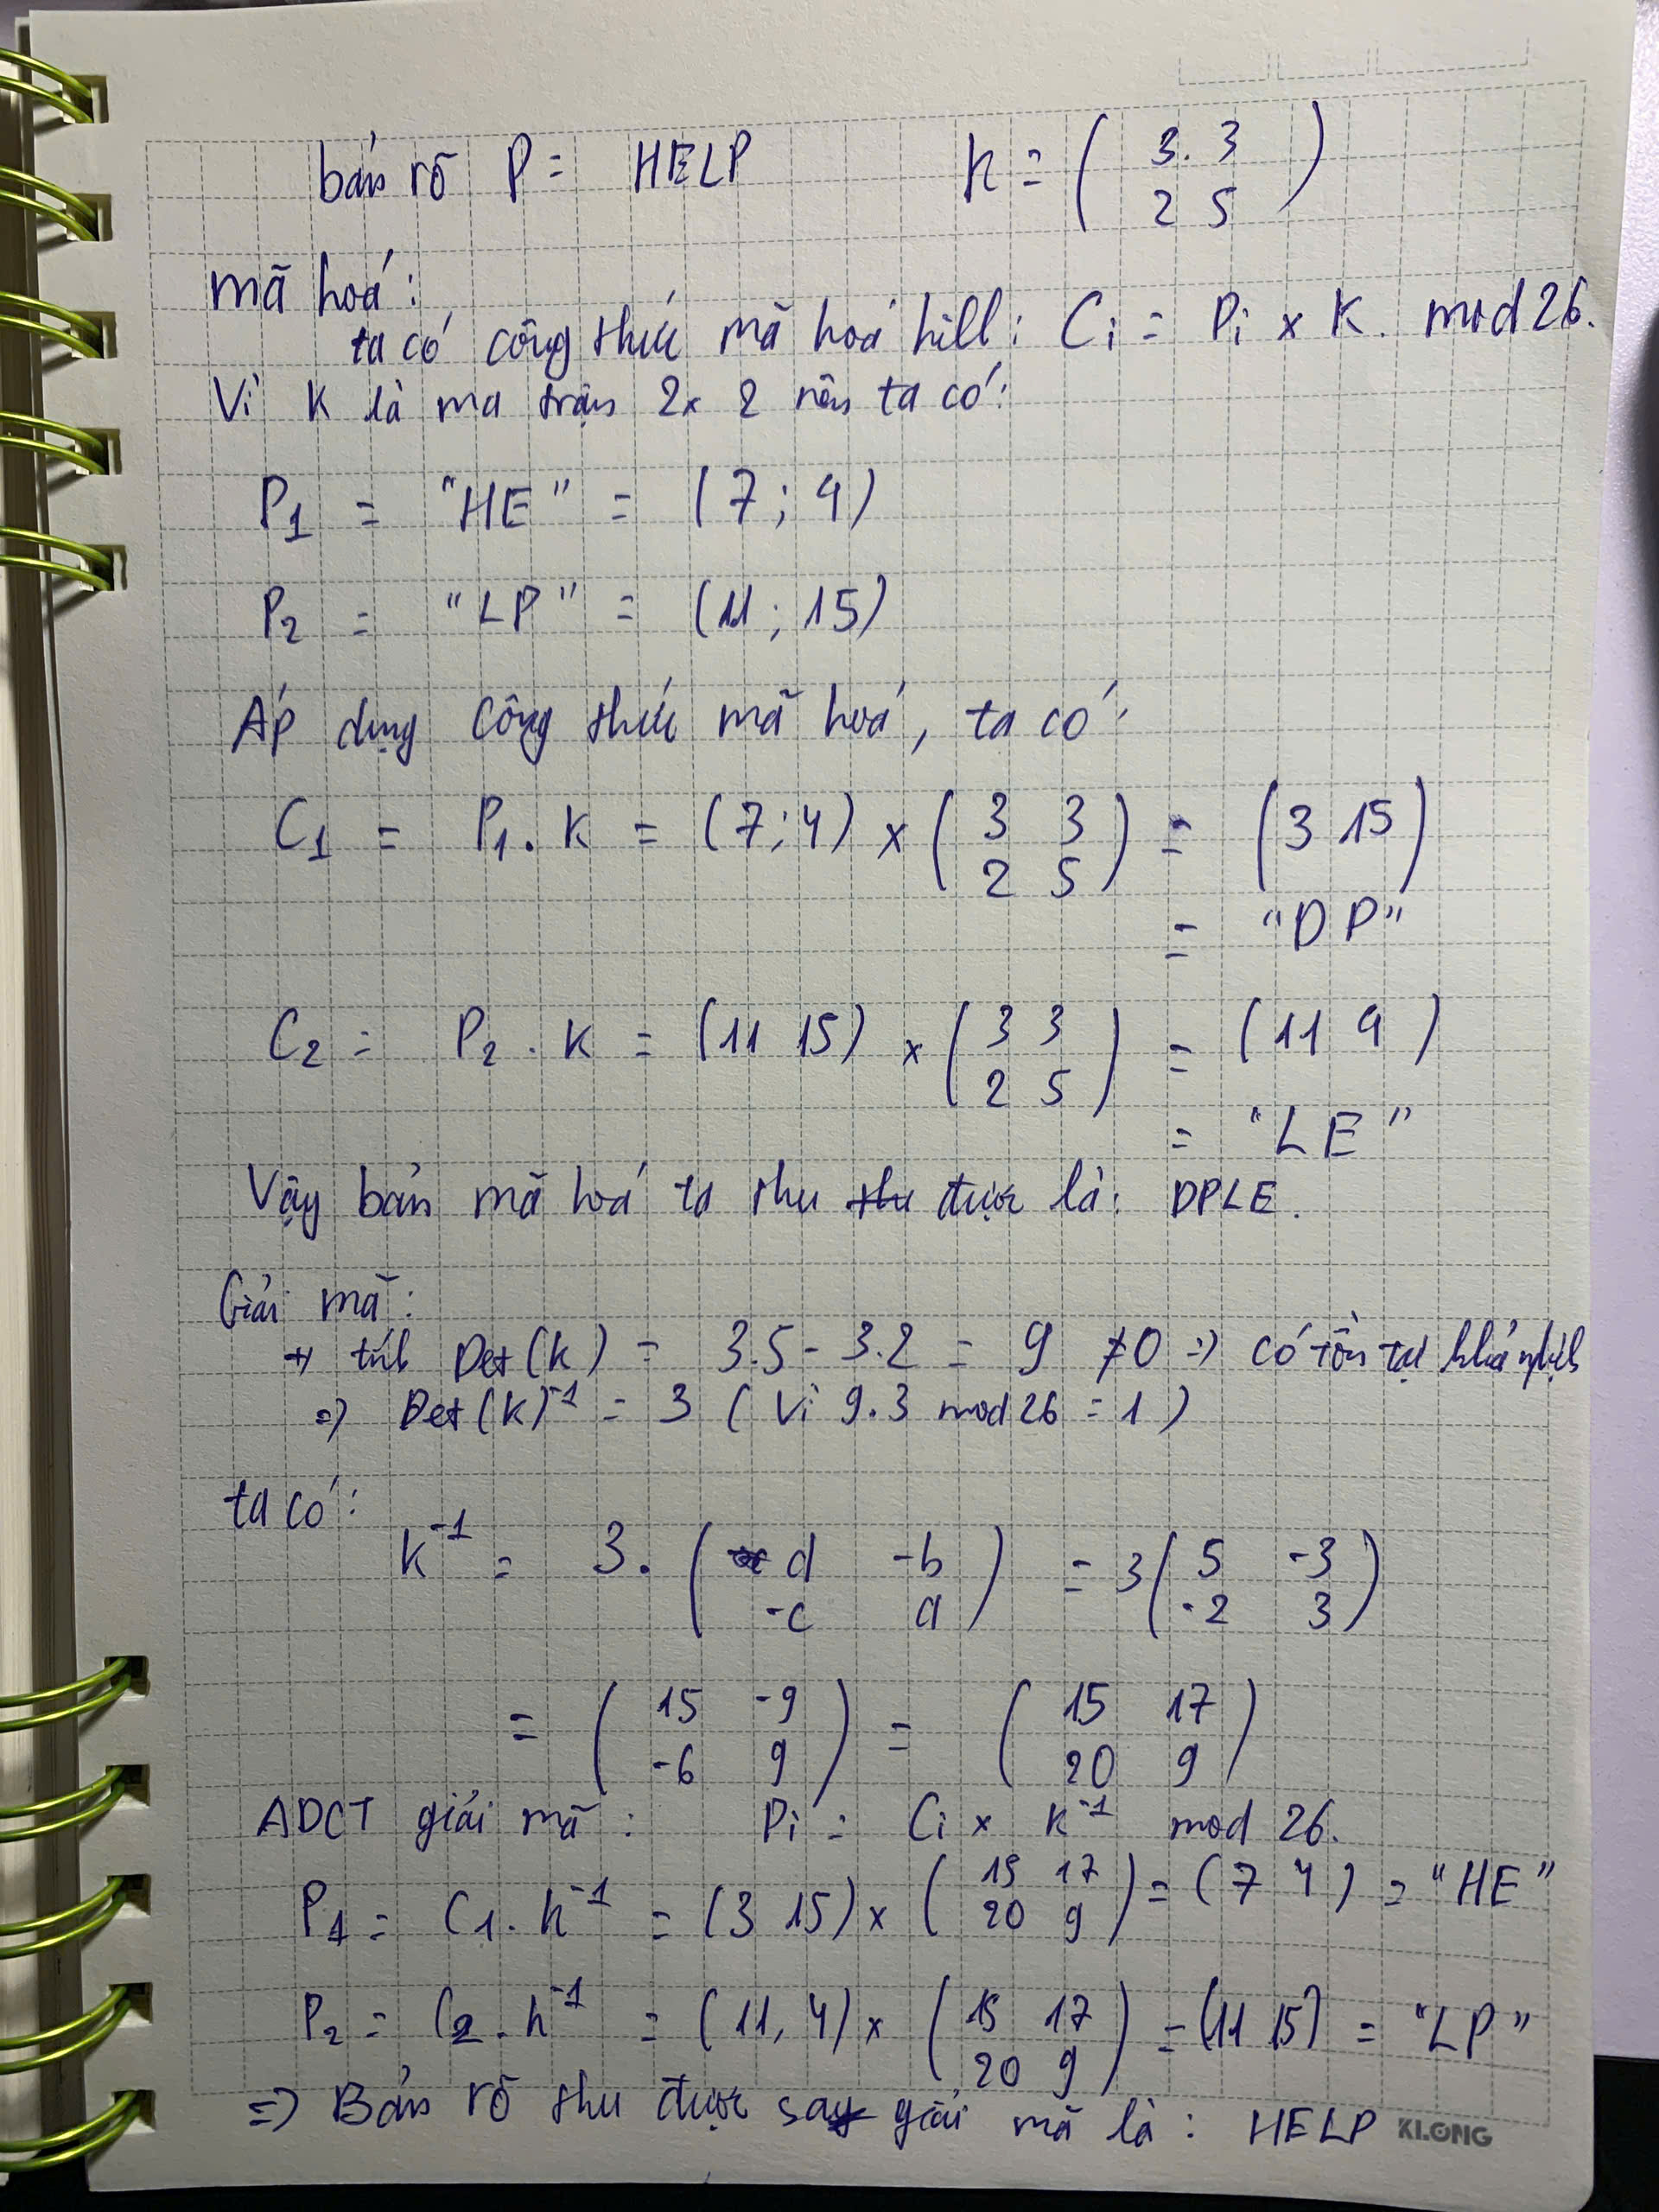 bản rõ P = HELP K = ( 3. 3 
2 5 )
mã hoá:
ta có công thức mã hoá hill: Ci = Pi x K. mod 26.
Vì K là ma trận 2x2 nên ta có:
P1 = "HE" = (7; 4)
P2 = "LP" = (11; 15)
Áp dụng công thức mã hoá, ta có:
C1 = P1. K = (7; 4) x ( 3 3 
2 5 ) = (3 15)
= "DP"
C2 = P2. K = (11 15) x ( 3 3 
2 5 ) = (11 4)
= "LE"
Vậy bản mã hoá ta thu được là: DPLE.
Giải mã:
+, tính Det(K) = 3.5 - 3.2 = 9 ≠ 0 => có tồn tại khả nghịch
=> Det(K)^-1 = 3 (Vì 9.3 mod 26 = 1)
ta có:
K^-1 = 3. ( d -b 
-c a ) = 3 ( 5 -3 
-2 3 )
= ( 15 -9 
-6 9 ) = ( 15 17 
20 9 )
ADCT giải mã: Pi = Ci x K^-1 mod 26.
P1 = C1. K^-1 = (3 15) x ( 15 17 
20 9 ) = (7 4) = "HE"
P2 = C2. K^-1 = (11, 4) x ( 15 17 
20 9 ) = (11 15) = "LP"
=> Bản rõ thu được say giải mã là: HELP
KLONG